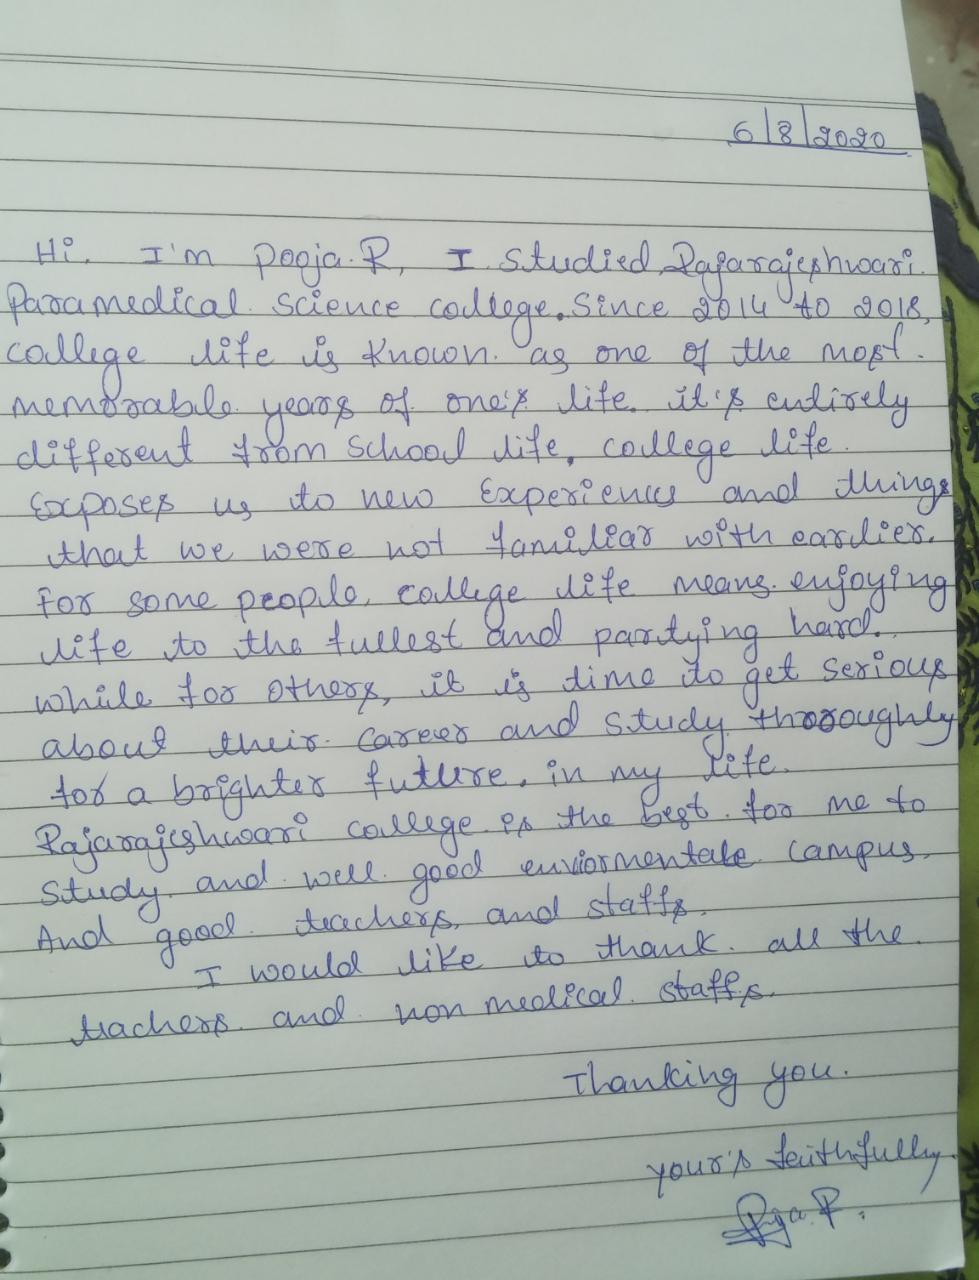 6/8/2020
Hi, I'm Pooja.R, I studied Rajarajeshwari
Paramedical Science college. Since 2014 to 2018,
college life is known as one of the most
memorable years of one's life. it's entirely
different from school life, college life
Exposes us to new Experiences and things
that we were not familiar with earlier.
For some people, college life means enjoying
life to the fullest and partying hard.
while for others, it is time to get serious
about their career and study thoroughly
for a brighter future. in my life.
Rajarajeshwari college is the best for me to
study and well good enviormentale campus,
And good teachers, and staffs.
I would like to thank all the
teachers and non medical staffs.
Thanking you.
your's faithfully